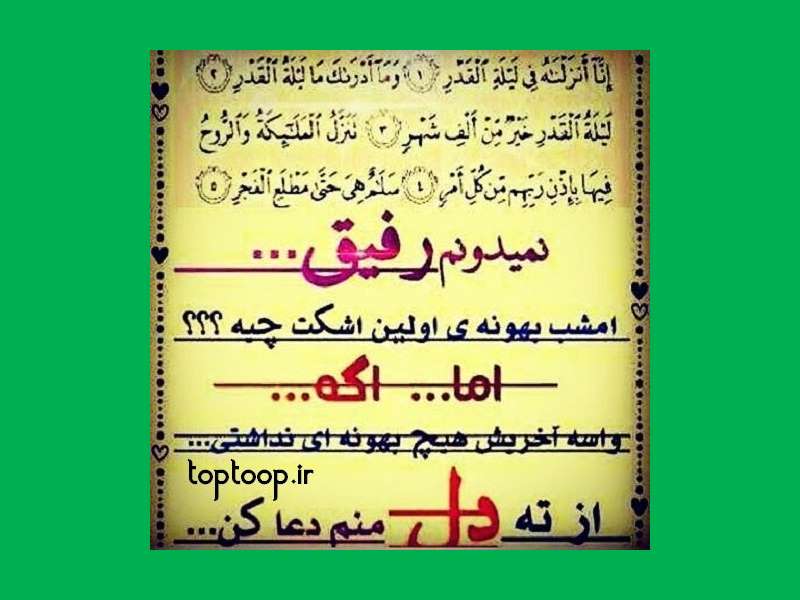 إِنَّا أَنزَلْنَٰهُ فِى لَيْلَةِ ٱلْقَدْرِ ۝١ وَمَآ أَدْرَىٰكَ مَا لَيْلَةُ ٱلْقَدْرِ ۝٢
لَيْلَةُ ٱلْقَدْرِ خَيْرٌ مِّنْ أَلْفِ شَهْرٍ ۝٣ تَنَزَّلُ ٱلْمَلَٰٓئِكَةُ وَٱلرُّوحُ
فِيهَا بِإِذْنِ رَبِّهِم مِّن كُلِّ أَمْرٍ ۝٤ سَلَٰمٌ هِىَ حَتَّىٰ مَطْلَعِ ٱلْفَجْرِ ۝٥
نمیدونم رفیق...
امشب بهونه ی اولین اشکت چیه ؟؟؟
اما... اگه...
واسه آخریش هیچ بهونه ای نداشتی...
toptoop.ir
از ته دل منم دعا کن...